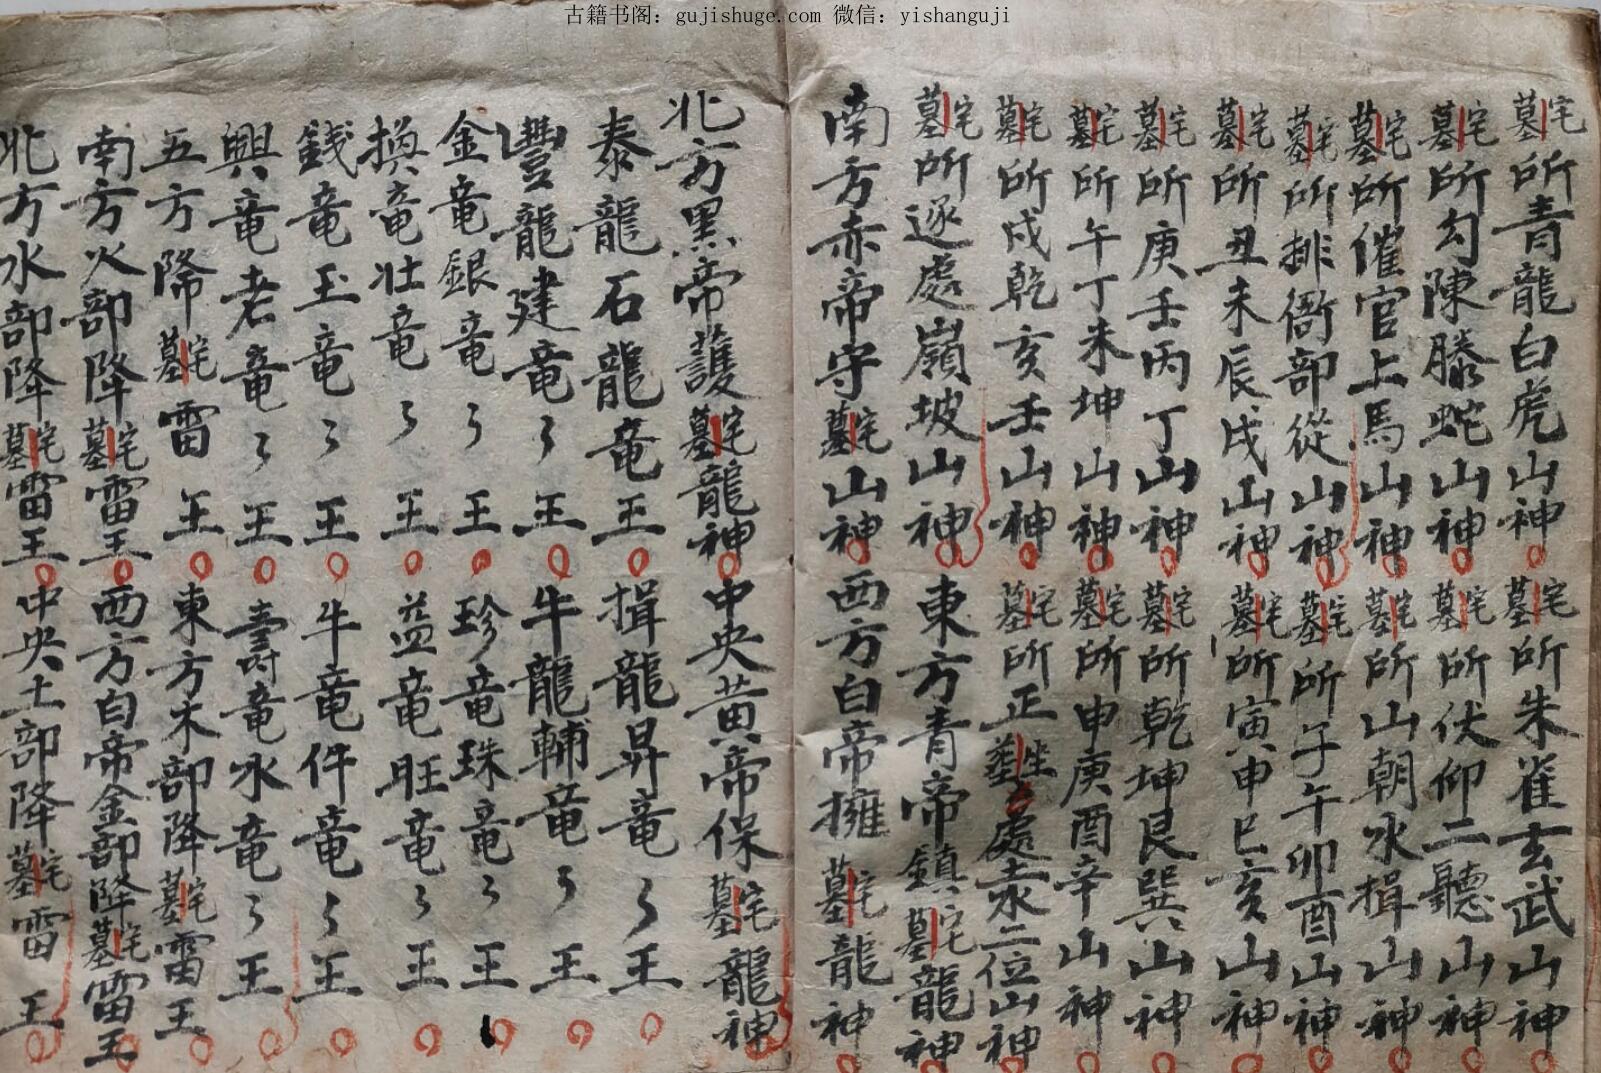 古籍书阁：gujishuge.com 微信：yishanguji
墓宅所青龍白虎山神 墓宅所朱雀玄武山神
墓宅所勾陳滕蛇山神 墓宅所伏仰二聽山神
墓宅所催官上馬山神 墓宅所山朝水揖山神
墓宅所排衙部從山神 墓宅所子午卯酉山神
墓宅所丑未辰戌山神 墓宅所寅申巳亥山神
墓宅所庚壬丙丁山神 墓宅所乾坤艮巽山神
墓宅所午丁未坤山神 墓宅所申庚酉辛山神
墓宅所戌乾亥壬山神 墓宅所正處土二位山神
墓宅所逐處嶺坡山神 東方青帝鎮墓宅龍神
南方赤帝守墓宅山神 西方白帝擁墓宅龍神
北方黑帝護墓宅龍神 中央黄帝保墓宅龍神
泰龍石龍竜王 揖龍昇竜々王
豐龍建竜々王 牛龍輔竜々王
金竜銀竜々王 珍竜珠竜々王
竜壮竜々王 益竜旺竜々王
錢竜玉竜々王 牛竜件竜々王
興竜老竜々王 壽竜水竜々王
五方降墓宅雷王 東方木部降墓宅雷王
南方火部降墓宅雷王 西方白帝金部降墓宅雷王
北方水部降墓宅雷王 中央土部降墓宅雷王